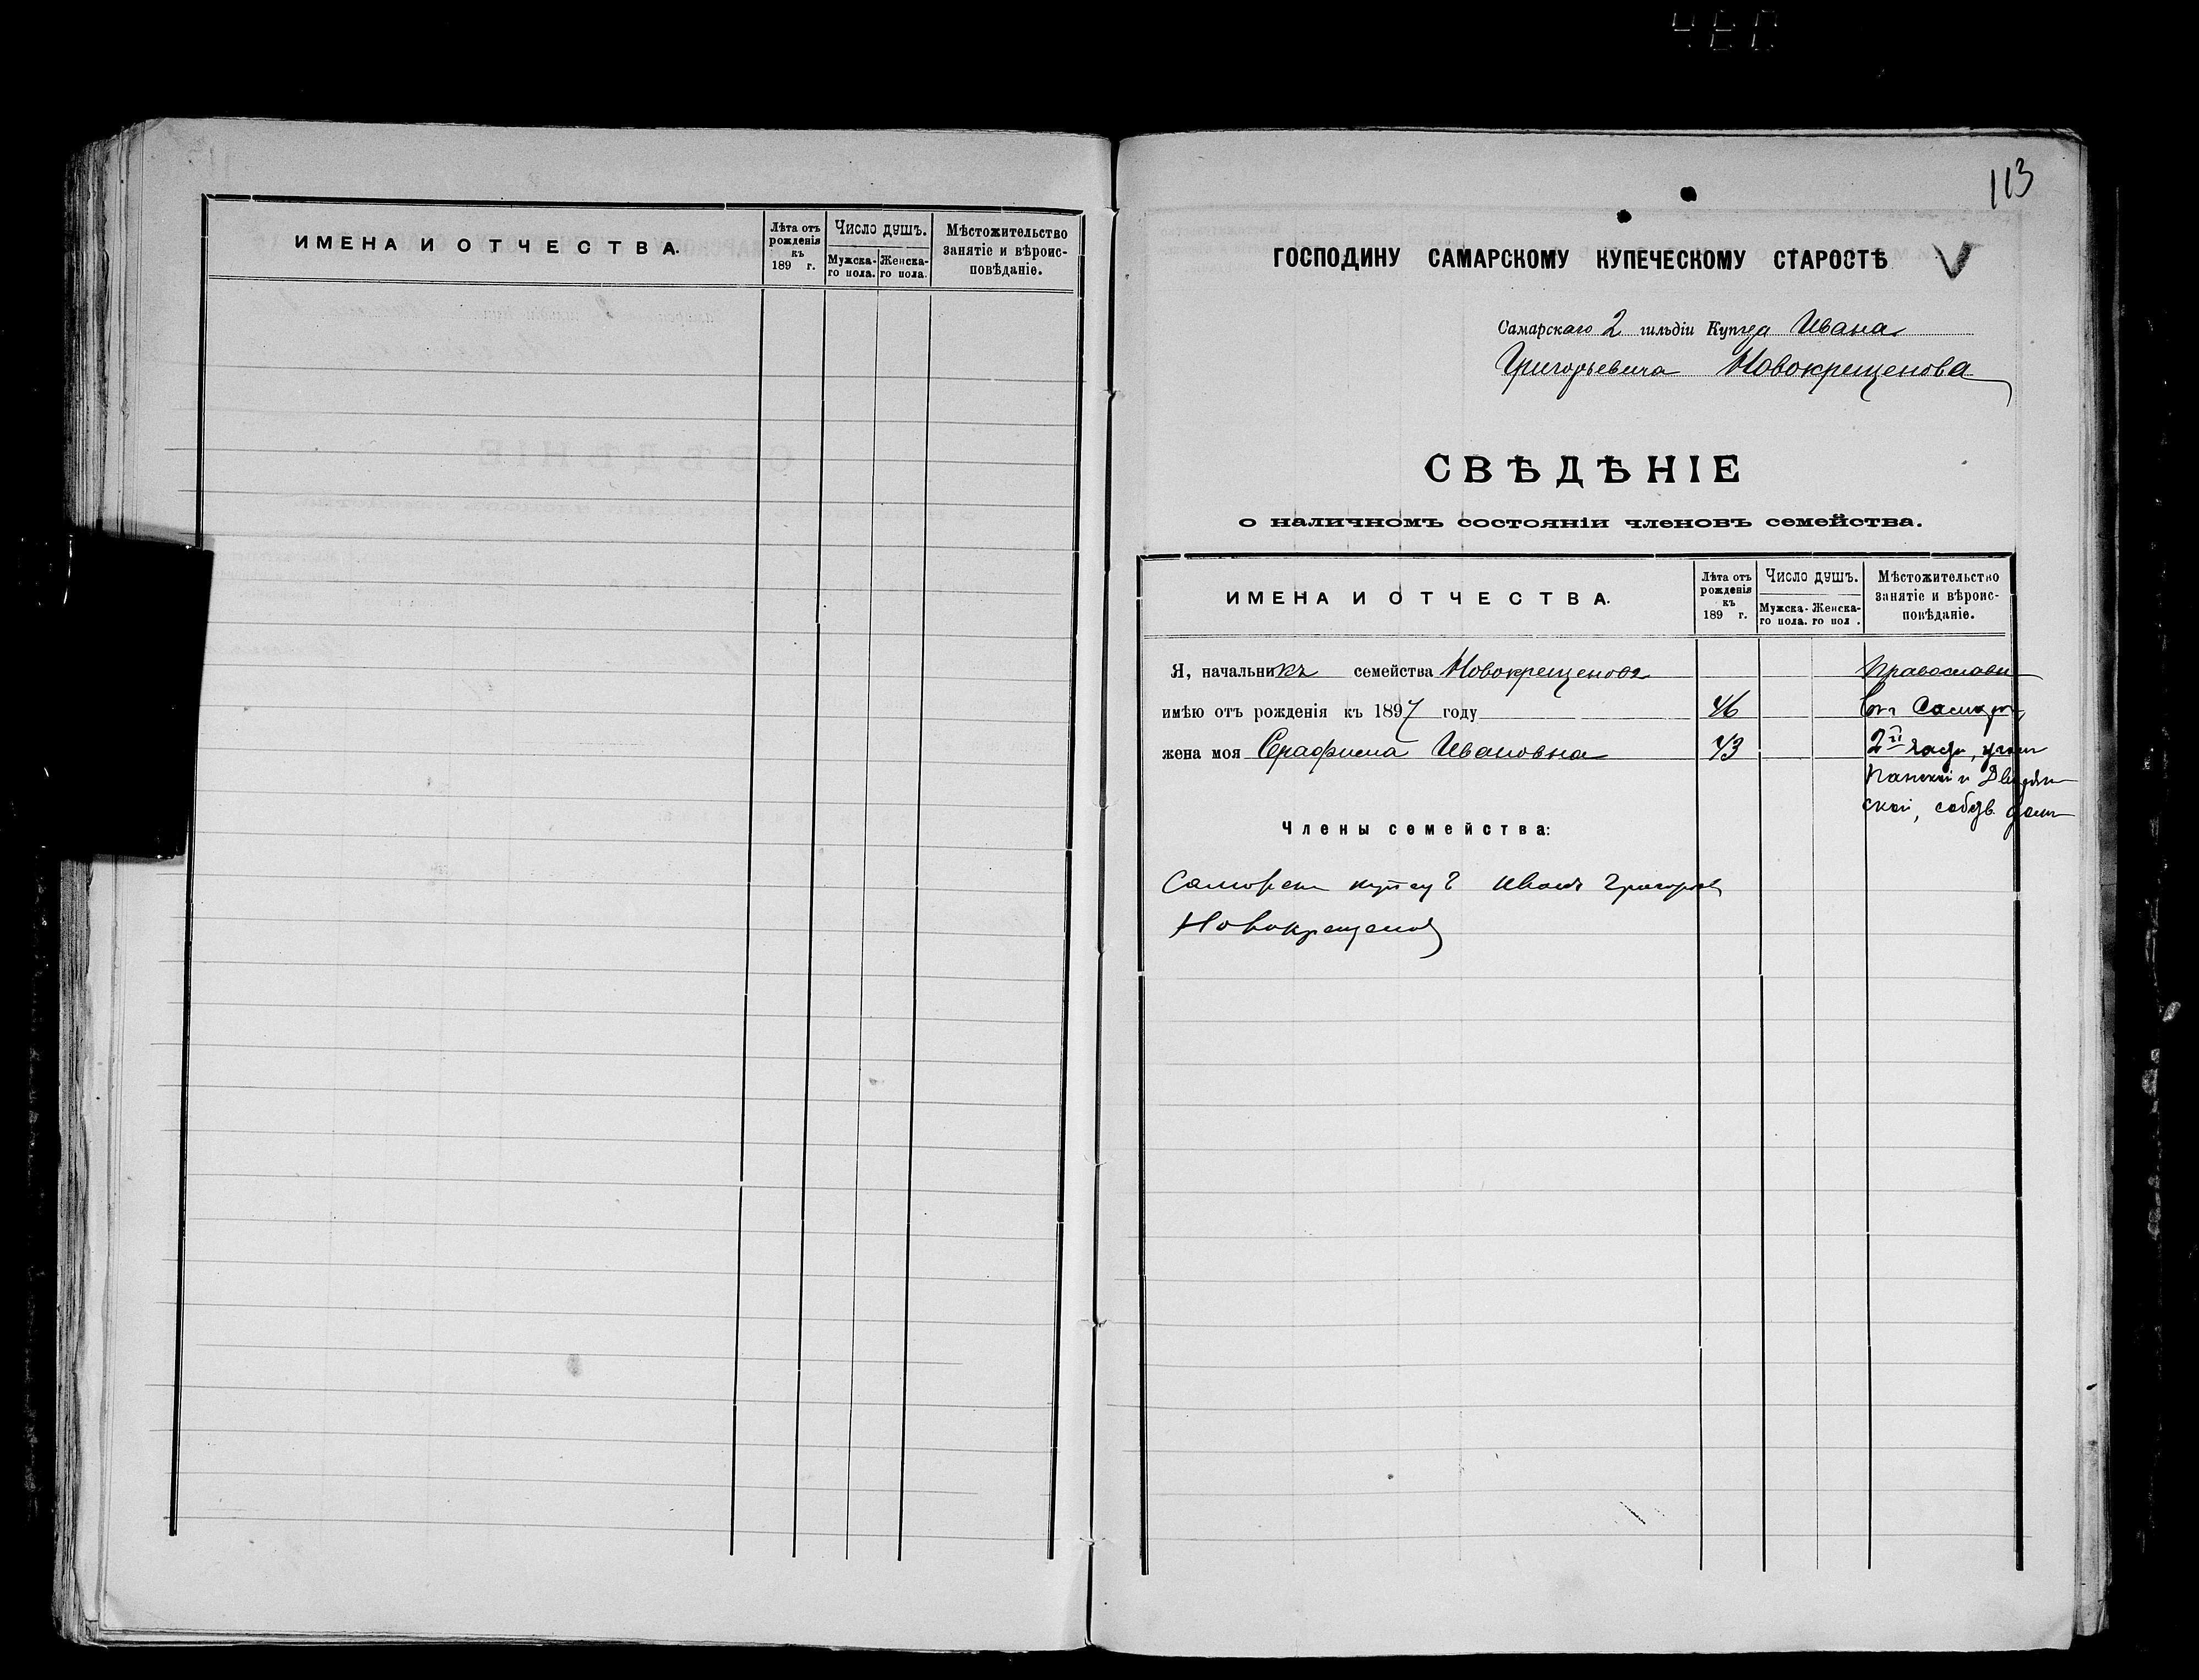 ИМЕНА И ОТЧЕСТВА.
Лѣта отъ рожденія къ 189 г.
Число душъ.
Мужска-го пола.
Женска-го пола.
Мѣстожительство занятіе и вѣроис-повѣданіе.
113
ГОСПОДИНУ САМАРСКОМУ КУПЕЧЕСКОМУ СТАРОСТѢ
Самарскаго 2 гильдіи Купца Ивана
Григорьевича Новокрещенова
СВѢДѢНІЕ
о наличномъ состояніи членовъ семейства.
ИМЕНА И ОТЧЕСТВА.
Лѣта отъ рожденія къ 189 г.
Число душъ.
Мужска-го пола.
Женска-го пол .
Мѣстожительство занятіе и вѣроис-повѣданіе.
Я, начальникъ семейства Новокрещеновъ
Православн
имѣю отъ рожденія къ 1897 году 46
Самарѣ,
жена моя Серафима Ивановна 43
2й части,
Панской и Дворян
ской, собств. домъ
Члены семейства:
Иванъ Григорьев
Новокрещеновъ